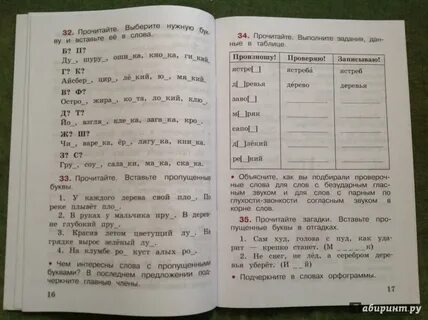 32. Прочитайте. Выберите нужную бук-
ву и вставьте её в слова.
Б? П?
Ду_, шуру_, оши_ка, кно_ка, ги_кий.
Г? К?
Айсбер_, цир_, лё_кий, ю_, мя_кий.
В? Ф?
Остро_, жира_, ко_та, ло_кий, клю_.
Д? Т?
Йо_, взгля_, кле_ка, зага_ка, кро_.
Ж? Ш?
Чи_, варе_ка, ёр_, лягу_ка, кни_ка.
З? С?
Гру_, соу_, сала_ки, ма_ка, ска_ка.
33. Прочитайте. Вставьте пропущенные
буквы.
1. У каждого дерева свой пло_. По
реке плывёт пло_.
2. В руках у мальчика пру_. В дерев-
не глубокий пру_.
3. Красив летом цветущий лу_. На
грядке вырос зелёный лу_.
4. На клумбе ро_ куст алых ро_.
• Чем интересны слова с пропущенными
буквами? В последнем предложении под-
черкните главные члены.
16
34. Прочитайте. Выполните задания, дан-
ные в таблице.
Произношу! Проверяю! Записываю!
ястре[ ] ястреба ястреб
д[ ]ревья дерево деревья
заво[ ]
м[ ]ря
сапо[ ]
д[ ]лёкий
ре[ ]кий
• Объясните, как вы подбирали провероч-
ные слова для слов с безударным глас-
ным звуком и для слов с парным по
глухости-звонкости согласным звуком в
корне слов.
35. Прочитайте загадки. Вставьте пропу-
щенные буквы в отгадках.
1. Сам худ, голова с пуд, как уда-
рит — крепко станет. (М_ _ _ _к)
2. Не снег, не лёд, а серебром дере-
вья уберёт. (И_ _й)
• Подчеркните в словах орфограммы.
17
абиринт.ру